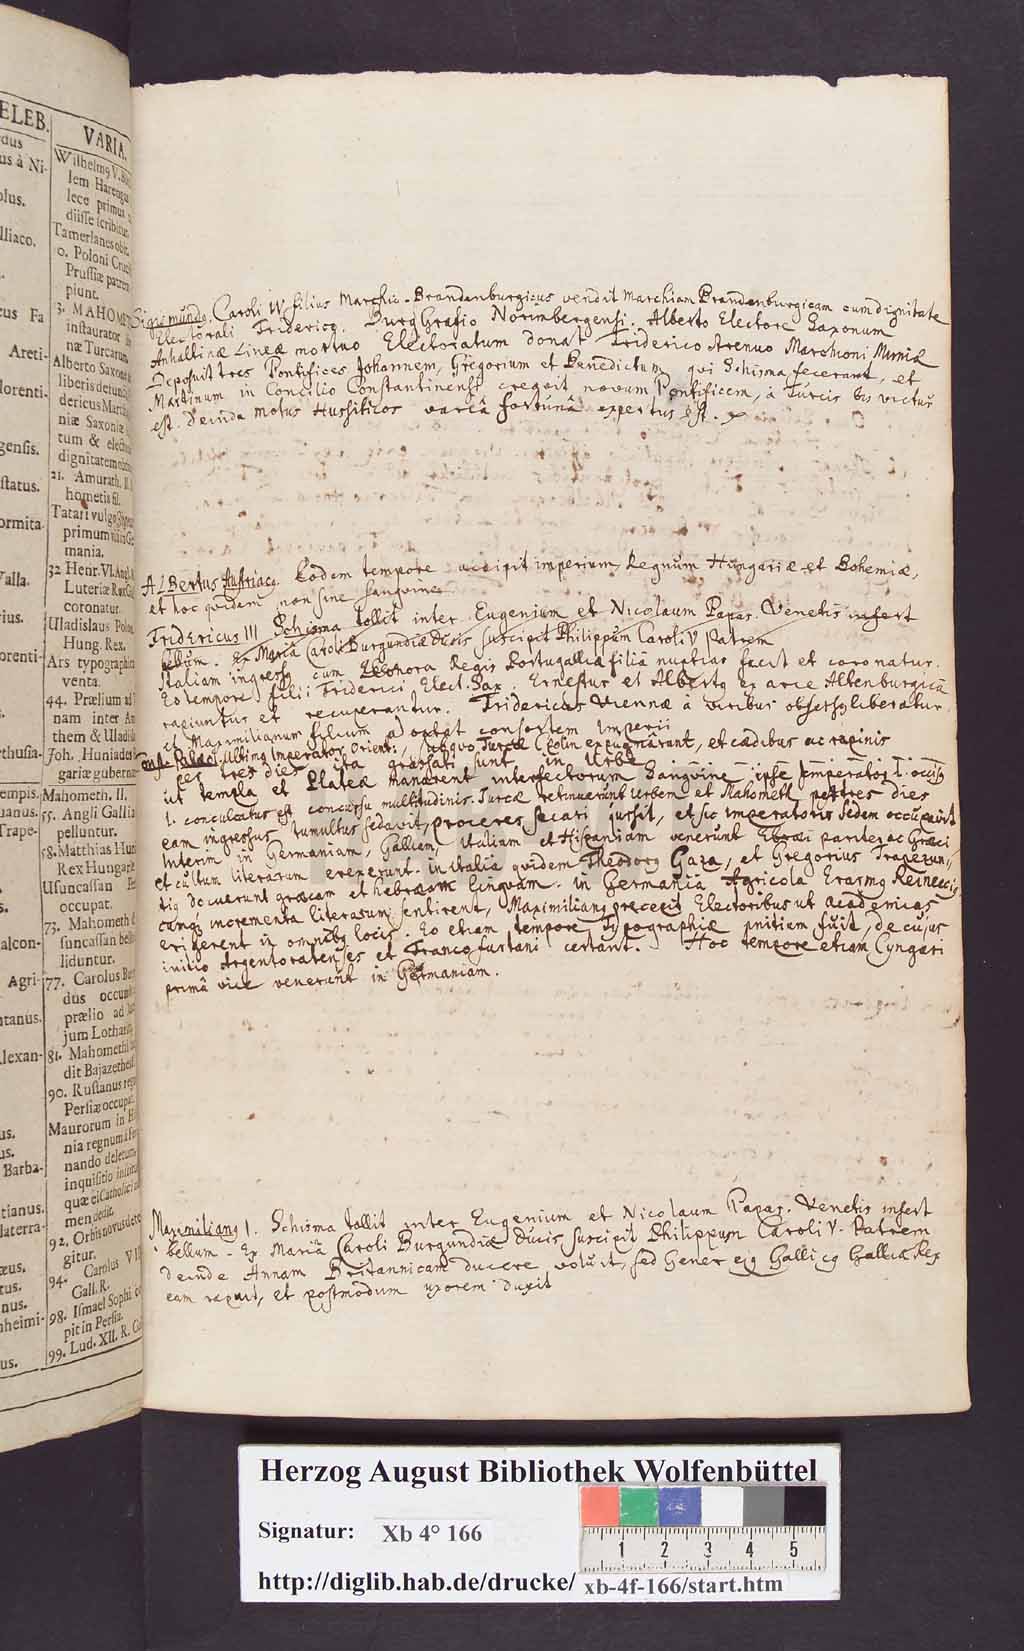 ELEB.
dus
us à Ni-
olus.
lliaco.
cus Fa
Areti-
lorenti-
gensis.
status.
ormita-
Valla.
rius.
orenti-
thusia-
empis.
uanus.
Trape-
alcon-
Agri-
ntanus.
lexan-
us.
us.
Barba-
tianus.
laterra-
æus.
tus.
nus.
nheimi-
us.
VARIA.
Wilhelmg V.
lem Harenga
lece primus
diisse scribitur
Tamerlanes obit.
0. Poloni Cruci
Prussiæ patrem
piunt.
3. MAHOMET
instaurator
næ Turcarum
Alberto Saxoni
liberis defuncto
dericus March
niæ Saxoniæ
tum & electo
dignitatem
21. Amurath. II.
hometis fil.
Tatari vulgo
primum in Ge
mania.
32 Henr. VI. Angl. R
Luteriæ Rex Gal
coronatur.
Uladislaus Polon
Hung. Rex.
Ars typographica
venta.
44. Prælium ad
nam inter Am
them & Uladis
Joh. Huniades
gariæ gubernat
Mahometh. II.
55. Angli Gallia
pelluntur.
58. Matthias Hun
Rex Hungariæ
Usuncassan
occupat.
73. Mahometh
suncassan bello
liduntur.
77. Carolus Bur
dus occumbit
prælio ad
jum Lotharing
81. Mahometh
dit Bajazethes
90. Rustanus regn
Persiæ occupat.
Maurorum in Hi
nia regnum à Fer
nando deletum
inquisitio
quæ ei Catholici
men dedit.
92. Orbis novus dete
gitur.
94. Carolus VIII
Gall. R.
98. Ismael Sophi
pit in Persia.
99. Lud. XII. R. Gal
Sigismundg. Caroli IV. filius Marchio Brandenburgicus vendit Marchiam Brandenburgicam cum dignitate
Electorali Fridericg. BurgGrafio Norimbergensi. Alberto Electore Saxonum
Anhaltinæ Lineæ mortuo Electoratum donat Friderico strenuo Marchioni Misniæ
Deposuit tres Pontifices Johannem, Gregorium et Benedictum qui Schisma fecerant, et
Martinum in Concilio Constantinensi creavit novum Pontificem, à Turcis bis victus
est. deinde motus Hussiticos variâ fortunâ expertus est.
ALBertus Austriacg. Eodem tempore accipit imperium, Regnum Hungariæ et Bohemiæ,
et hoc quidem non sine sanguine
Fridericus III Schisma tollit inter Eugenium et Nicolaum Papas. Venetis infert
bellum. Ex Mariâ Caroli Burgundiæ Ducis suscipit Philippum Caroli V Patrem
Italiam ingressg cum Eleonora Regis Portugalliæ filiâ nuptias facit et coronatur.
Eo tempore filii Friderici Elect. Sax. Ernestus et Albertg ex arce Altenburgicâ
rapiuntur et recuperantur. Fridericus Viennæ à civibus obsessg liberatur
et Maximilianum filium adoptat consortem Imperii
Const. Palæol. Ultimg Imperator Orient: , sub quo Turcæ Cpolin expugnârunt, et cædibus ac rapinis
per tres dies ita grassati sunt in Urbe
ut templa et Plateæ manarent interfectorum Sanguine, ipse Imperator T. occisg
1. conculcatus est concursu multitudinis. Turcæ retinuerunt Urbem et Mahometh per tres dies
eam ingressus tumultus sedavit, proceres secari jussit, et sic imperatoris sedem occupavit
Interim in Germaniam, Galliam, Italiam et Hispaniam venerunt Ebræi pariter ac Græci
et cultum literarum erexerunt. in italiâ quidem Theodorg Gaza, et Gregorius Trapezun„
tig docuerunt græcam et hebræam linguam. in Germania Agricola Erasmg Reineccig
cumq; incrementa literarum sentirent, Maximiliang præcepit Electoribus ut academias
erigerent in omnibg locis. Eo etiam tempore Typographiæ initium fuit, de cujus
initio Argentoratenses et Francofurtani certant. Hoc tempore etiam Cyngari
primâ vice venerunt in Germaniam.
Maximiliang I. Schisma tollit inter Eugenium et Nicolaum Papas. Venetis infert
bellum. Ex Mariâ Caroli Burgundiæ Ducis suscipit Philippum Caroli V. Patrem
deinde Annam Britannicam ducere voluit, sed Gener eig Gallicg Galliæ Rex
eam rapuit, et postmodum uxorem duxit
Herzog August Bibliothek Wolfenbüttel
Signatur: Xb 4° 166
1 2 3 4 5
http://diglib.hab.de/drucke/ xb-4f-166/start.htm